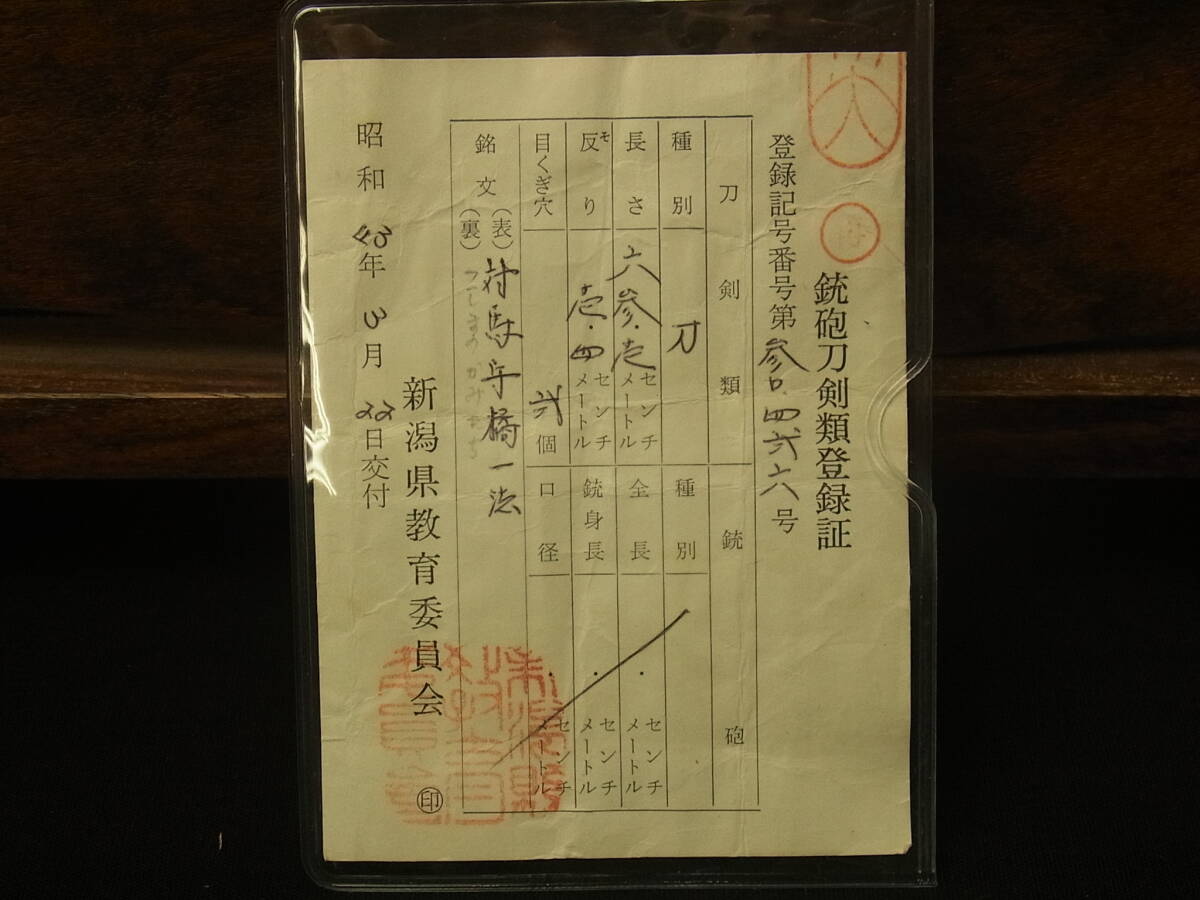 銃砲刀剣類登録証
登録記号番号第参口.四弐六八号
刀剣類
種別 刀
長さ 六参.壱センチメートル
反り 壱.四センチメートル
ソ
目くぎ穴 弐個
銘文(表)対馬守橘一法
(裏)
つしまのかみたち
銃砲
種別
全長 .センチメートル
銃身長 .センチメートル
口径 .センチメートル
昭和43年3月22日交付
新潟県教育委員会 印